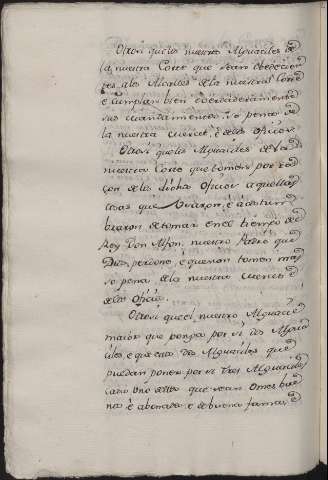 Otrosi que los nuestros Alguaciles de
la nuestra Corte que sean obedecien
tes a los Alcaldes de la nuestra Corte
é cumplan bien é verdaderamente
sus mandamientos, so pena de
la nuestra merced, é de los oficios.
Otrosi que los Alguaciles de la
nuestra Corte que tomen por ra
zon de los dichos Oficios aquellas
cosas que usaron, é acostum
braron de tomar en el tiempo del
Rey Don Alfon, nuestro Padre que
Dios perdone, é que non tomen mas
so pena de la nuestra merced é
de los Oficios.
Otrosi que el nuestro Alguacil
maior que ponga por si dos Algua
ciles, é que estos dos Alguaciles que
puedan poner por si tres Alguaciles
cada uno dellos que sean omes bue
nos é abonados é de buena fama, é